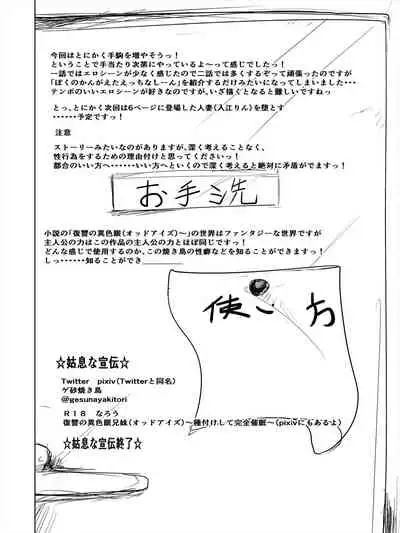 今回はとにかく手駒を増やそうっ！
ということで手当たり次第にやっているよ～って感じでしたっ！
一話ではエロシーンが少なく感じたので二話では多くするぞって頑張ったのですが
「ぼくのかんがえたえっちなしーん」を紹介するだけみたいになってしまいました・・・
テンポのいいエロシーンが好きなのですが、いざ描くとなると難しいですねっ
とっ、とにかく次回は6ページに登場した人妻（入江りん）を堕とす
・・・・・・予定ですっ！
注意
ストーリーみたいなのがありますが、深く考えることなく、
性行為をするための理由付けと思ってくださいっ！
都合のいい方へ・・・・・・いい方へといくので深く考えると絶対に矛盾がでますっ！
お手洗
小説の「復讐の異色眼（オッドアイズ）～」の世界はファンタジーな世界ですが
主人公の力はこの作品の主人公の力とほぼ同じですっ！
どんな感じで使用するのか、この焼き鳥の性癖などを知ることができますっ！
しっ・・・・・・知ることができ
使い方
☆姑息な宣伝☆
Twitter pixiv（Twitterと同名）
ゲ砂焼き鳥
@gesunayakitori
R18 なろう
復讐の異色眼兄妹（オッドアイズ）～種付けして完全催眠～（pixivにもあるよ）
☆姑息な宣伝終了☆